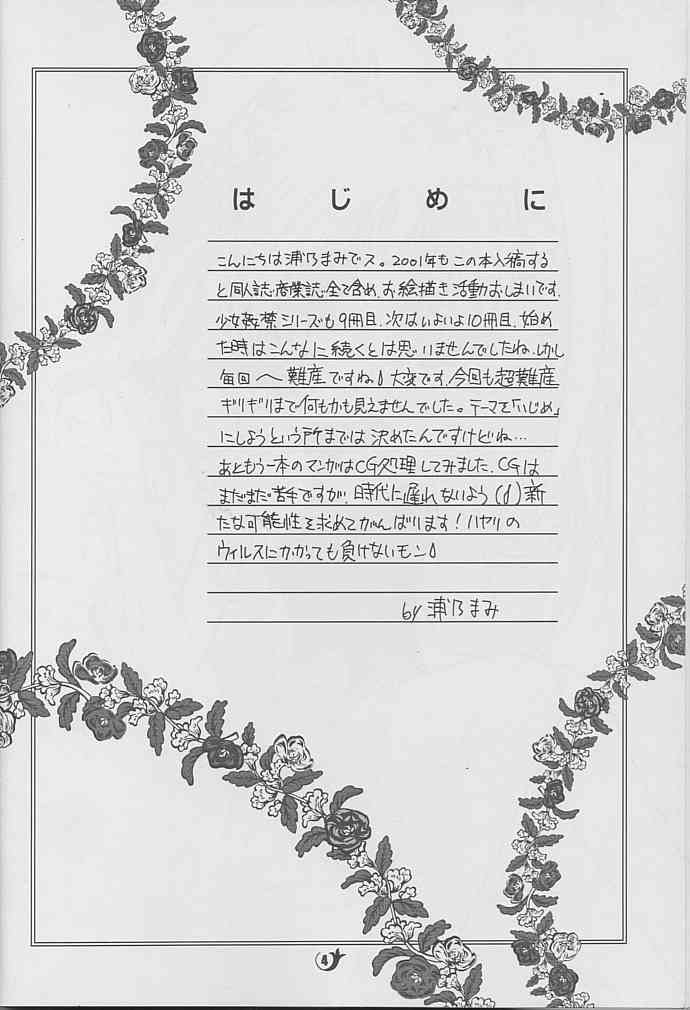 はじめに
こんにちは浦乃まみでス。2001年もこの本入稿する
と同人誌・商業誌・全て含め、お絵描き活動おしまいです。
少女姦禁シリーズも9冊目、次はいよいよ10冊目。始め
た時はこんなに続くとは思いませんでしたね。しかし
毎回へ難産ですね。大変です。今回も超難産
ギリギリまで何もかも見えませんでした。テーマを「いじめ」
にしようという所までは決めたんですけどね…
あともう一本のマンガはCG処理してみました。CGは
まだまだ苦手ですが、時代に遅れないよう 新
たな可能性を求めてがんばります！ハヤリの
ウィルスにかかっても負けないモン
by 浦乃まみ
4